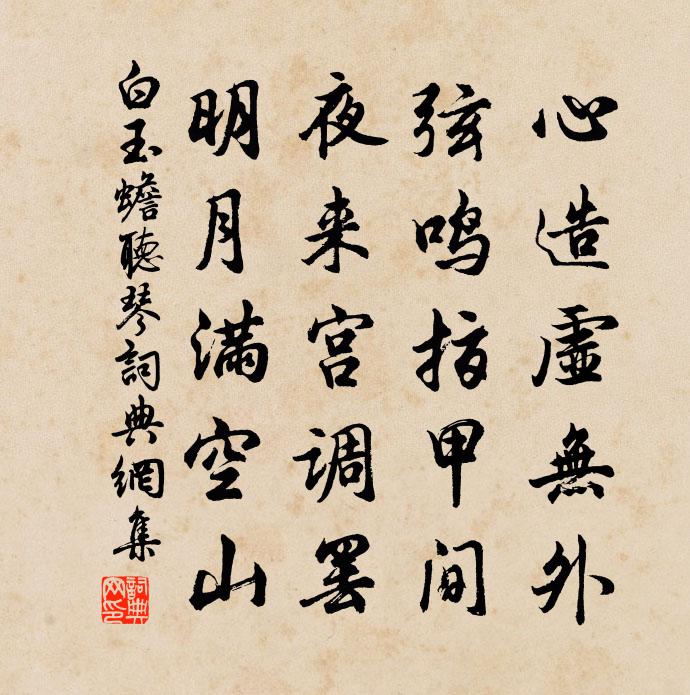 心造虛無外
弦鳴指甲間
夜来宫调罢
明月满空山
白玉蟾聽琴詞典網集
詞典網印